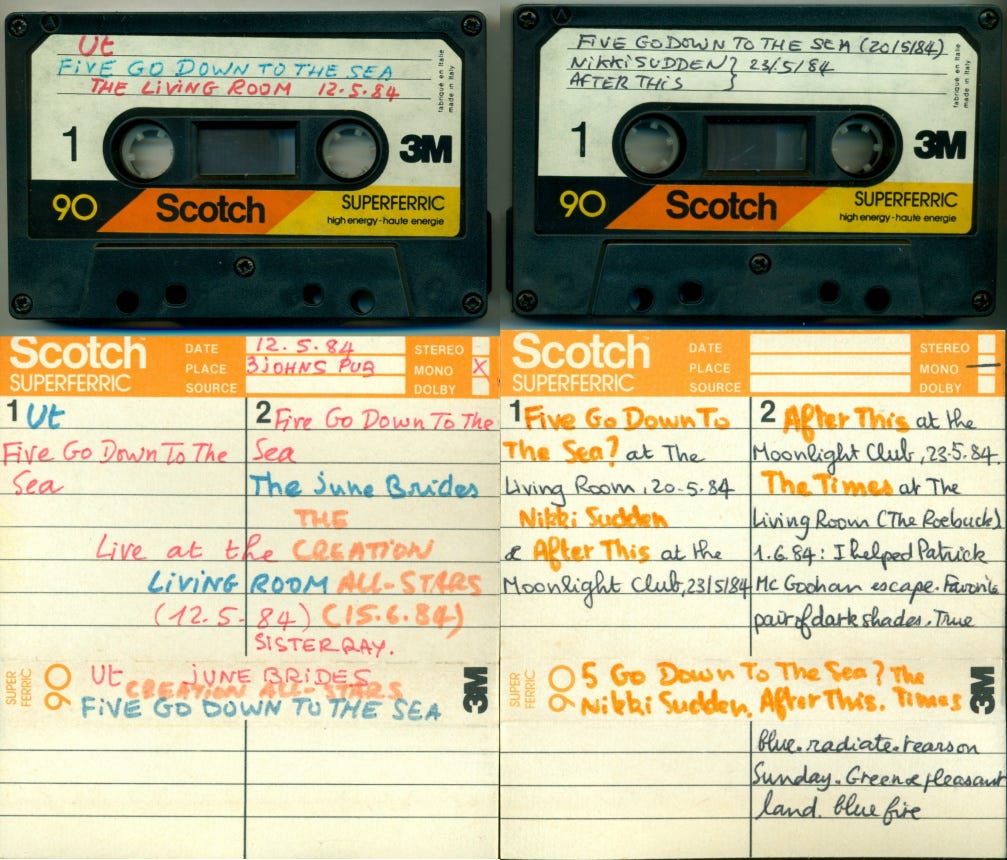 Ut
FIVE GO DOWN TO THE SEA
THE LIVING ROOM 12.5.84
fabriqué en Italie
made in Italy
1
3M
90
Scotch
SUPERFERRIC
high energy-haute energie
FIVE GO DOWN TO THE SEA (20/5/84)
NIKKI SUDDEN } 23/5/84
AFTER THIS }
fabriqué en Italie
made in Italy
1
3M
90
Scotch
SUPERFERRIC
high energy-haute energie
Scotch
SUPERFERRIC
DATE 12.5.84 STEREO
PLACE 3 JOHNS PUB MONO X
SOURCE DOLBY
1 Ut
Five Go Down To The
Sea
2 Five Go Down To The
Sea
The June Brides
THE
Live at the CREATION
LIVING ROOM ALL-STARS
(12.5.84) (15.6.84)
SISTER RAY.
SUPER
FERRIC
90
Ut JUNE BRIDES
CREATION ALL-STARS
FIVE GO DOWN TO THE SEA
3M
Scotch
SUPERFERRIC
DATE STEREO
PLACE MONO —
SOURCE DOLBY
1 Five Go Down To
The Sea? at The
Living Room, 20.5.84
Nikki Sudden
& After This at the
Moonlight Club, 23/5/84
2 After This at the
Moonlight Club, 23.5.84.
The Times at The
Living Room (The Roebuck)
1.6.84: I helped Patrick
Mc Goohan escape. Favorite
pair of dark shades. True
SUPER
FERRIC
90
5 Go Down To The Sea? The
Nikki Sudden. After This. Times
3M
blue. radiate. tears on
Sunday. Green & pleasant
land. blue fire